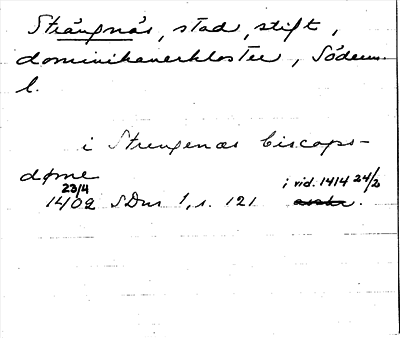 Strängnäs, stad, stift,
dominikanerkloster, Söderm.
l.
i Strengenæs biscops-
døme
23/4
1402 SDns 1, s. 121 i vid. 1414 24/2